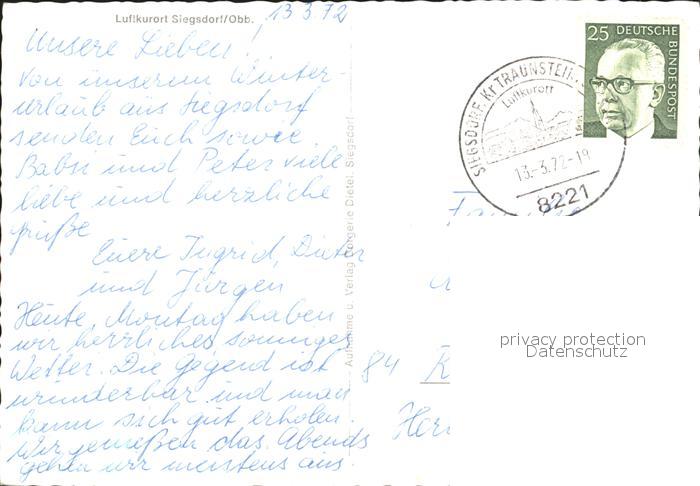 Luftkurort Siegsdorf/Obb.
13.3.72
Unsere Lieben!
Von unserem Winter-
urlaub aus Siegsdorf
senden Euch sowie
Babsi und Peter viele
liebe und herzliche
Grüße
Euere Ingrid, Dieter
und Jürgen
Heute, Montag haben
wir herrliches sonniges
Wetter. Die Gegend ist
wunderbar und man
kann sich gut erholen.
Wir genießen das. Abends
gehen wir meistens aus.
Aufnahme u. Verlag Dietel, Siegsdorf
25 DEUTSCHE
BUNDESPOST
SIEGSDORF, Kr TRAUNSTEIN
Luftkurort
13.-3.72-19
8221
84 R
privacy protection
Datenschutz